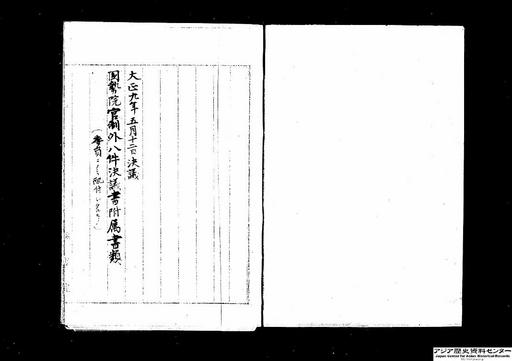 大正九年五月十二日決議
国勢院官制外八件決議書附属書類
(委員ニ配付
アジア歴史資料センター
Japan Center for Asian Historical Records